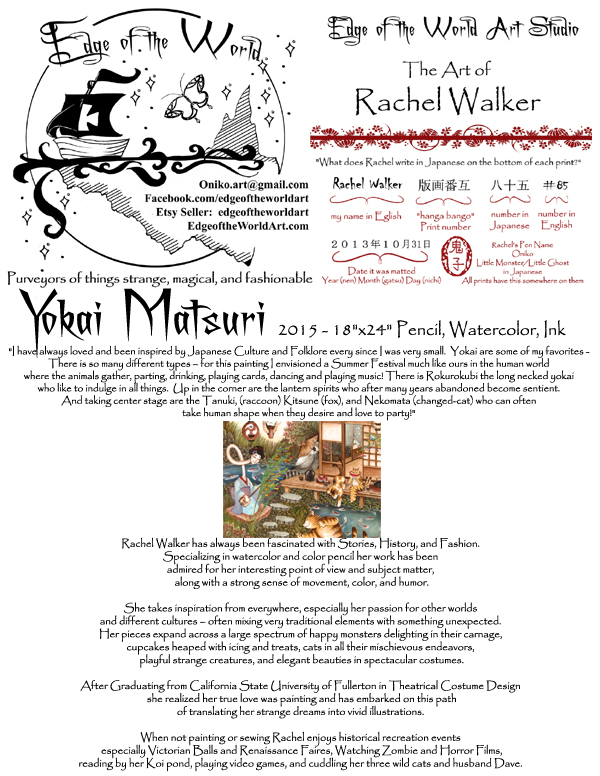 Edge of the World
Oniko.art@gmail.com
Facebook.com/edgeoftheworldart
Etsy Seller: edgeoftheworldart
EdgeoftheWorldArt.com
Purveyors of things strange, magical, and fashionable
Edge of the World Art Studio
The Art of
Rachel Walker
"What does Rachel write in Japanese on the bottom of each print?"
Rachel Walker 版画番互 八十五 #85
my name in Eglish "hanga bango" Print number number in Japanese number in English
2013年10月31日
Date it was matted
Year (nen) Month (gatsu) Day (nichi)
鬼子
Rachel's Pen Name
Oniko
Little Monster/Little Ghost
in Japanese
All prints have this somewhere on them
Yokai Matsuri 2015 - 18"x24" Pencil, Watercolor, Ink
"I have always loved and been inspired by Japanese Culture and Folklore every since I was very small. Yokai are some of my favorites -
There is so many different types – for this painting I envisioned a Summer Festival much like ours in the human world
where the animals gather, parting, drinking, playing cards, dancing and playing music! There is Rokurokubi the long necked yokai
who like to indulge in all things. Up in the corner are the lantern spirits who after many years abandoned become sentient.
And taking center stage are the Tanuki, (raccoon) Kitsune (fox), and Nekomata (changed-cat) who can often
take human shape when they desire and love to party!"
Rachel Walker has always been fascinated with Stories, History, and Fashion.
Specializing in watercolor and color pencil her work has been
admired for her interesting point of view and subject matter,
along with a strong sense of movement, color, and humor.
She takes inspiration from everywhere, especially her passion for other worlds
and different cultures – often mixing very traditional elements with something unexpected.
Her pieces expand across a large spectrum of happy monsters delighting in their carnage,
cupcakes heaped with icing and treats, cats in all their mischievous endeavors,
playful strange creatures, and elegant beauties in spectacular costumes.
After Graduating from California State University of Fullerton in Theatrical Costume Design
she realized her true love was painting and has embarked on this path
of translating her strange dreams into vivid illustrations.
When not painting or sewing Rachel enjoys historical recreation events
especially Victorian Balls and Renaissance Faires, Watching Zombie and Horror Films,
reading by her Koi pond, playing video games, and cuddling her three wild cats and husband Dave.